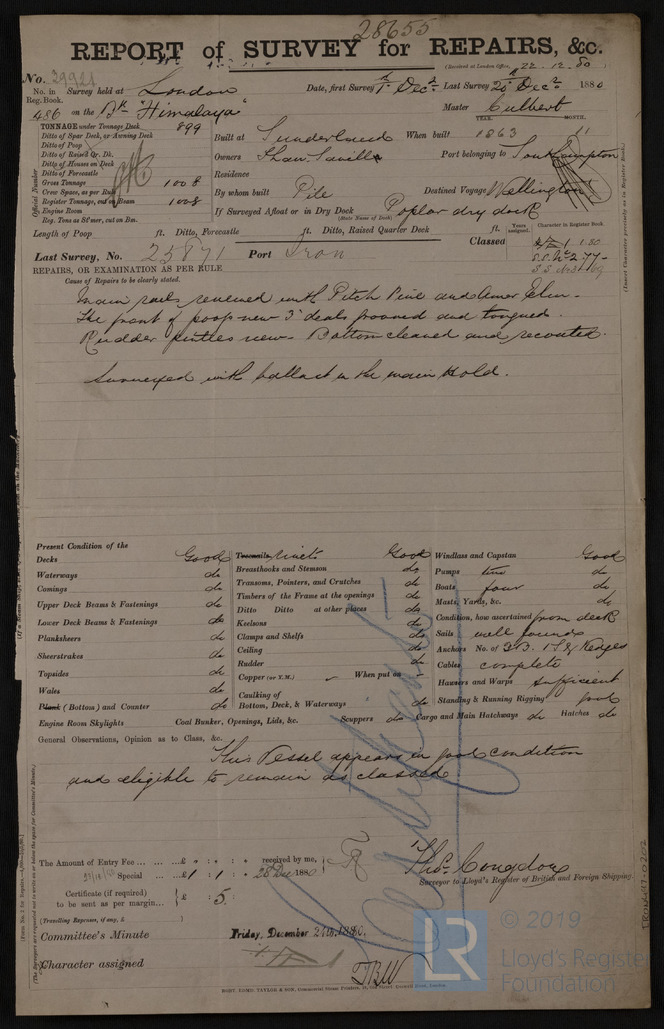 28655
REPORT of SURVEY for REPAIRS, &c.
(Received at London Office, 22-12-80
No. 39921
No. in Reg. Book.
Survey held at London
Date, first Survey 1st Decr Last Survey 20 Decr 1880
486 on the Bk "Himalaya"
Master Culbert
TONNAGE under Tonnage Deck 899
Ditto of Spar Deck, or Awning Deck
Ditto of Poop
Ditto of Raised Qr. Dk.
Ditto of Houses on Deck
Ditto of Forecastle
Gross Tonnage 1008
Crew Space, as per Rule
Register Tonnage, cut on Beam 1008
Engine Room
Reg. Tons as St'mer, cut on Bm.
Official Number
Built at Sunderland When built 1863 11
YEAR. MONTH.
Owners Shaw Savill
Port belonging to Southampton
Residence
By whom built Pile Destined Voyage Wellington
If Surveyed Afloat or in Dry Dock Poplar dry dock
(State Name of Dock)
Length of Poop ft. Ditto, Forecastle ft. Ditto, Raised Quarter Deck ft.
Years assigned.
Character in Register Book
Classed
1.80
S.S. No 2-77-
Last Survey, No. 25871 Port Iron
REPAIRS, OR EXAMINATION AS PER RULE
Cause of Repairs to be clearly stated.
Main rails renewed with Pitch Pine and Amer Elm.
The front of poop new 3" deals grooved and tongued.
Rudder pintles new. Bottom cleaned and recoated.
Surveyed with ballast in the main Hold.
Present Condition of the
Decks Good
Waterways do
Comings do
Upper Deck Beams & Fastenings do
Lower Deck Beams & Fastenings do
Planksheers do
Sheerstrakes do
Topsides do
Wales do
Plank (Bottom) and Counter do
Engine Room Skylights Coal Bunker, Openings, Lids, &c. Scuppers do Cargo and Main Hatchways do Hatches do
Treenails rivets Good
Breasthooks and Stemson do
Transoms, Pointers, and Crutches do
Timbers of the Frame at the openings do
Ditto Ditto at other places do
Keelsons do
Clamps and Shelfs do
Ceiling do
Rudder do
Copper (or Y.M.) When put on
Caulking of Bottom, Deck, & Waterways do
Windlass and Capstan Good
Pumps two do
Boats four do
Masts, Yards, &c. do
Condition, how ascertained from deck
Sails well found
Anchors No. of 3B. 1S. & Kedges
Cables complete
Hawsers and Warps sufficient
Standing & Running Rigging good
General Observations, Opinion as to Class, &c.
This Vessel appears in good condition
and eligible to remain as classed
The Amount of Entry Fee ... ... £ : : received by me,
Special ... £ 1 : 1 : 28 Dec 1880
Certificate (if required) to be sent as per margin... £ : 5 .
(Travelling Expenses, if any, £
Thos. Congdon
Surveyor to Lloyd's Register of British and Foreign Shipping.
Committee's Minute
Friday, December 24th, 1880.
Character assigned
TBW
IRON 447-0202
LR
© 2019
Lloyd's Register
Foundation